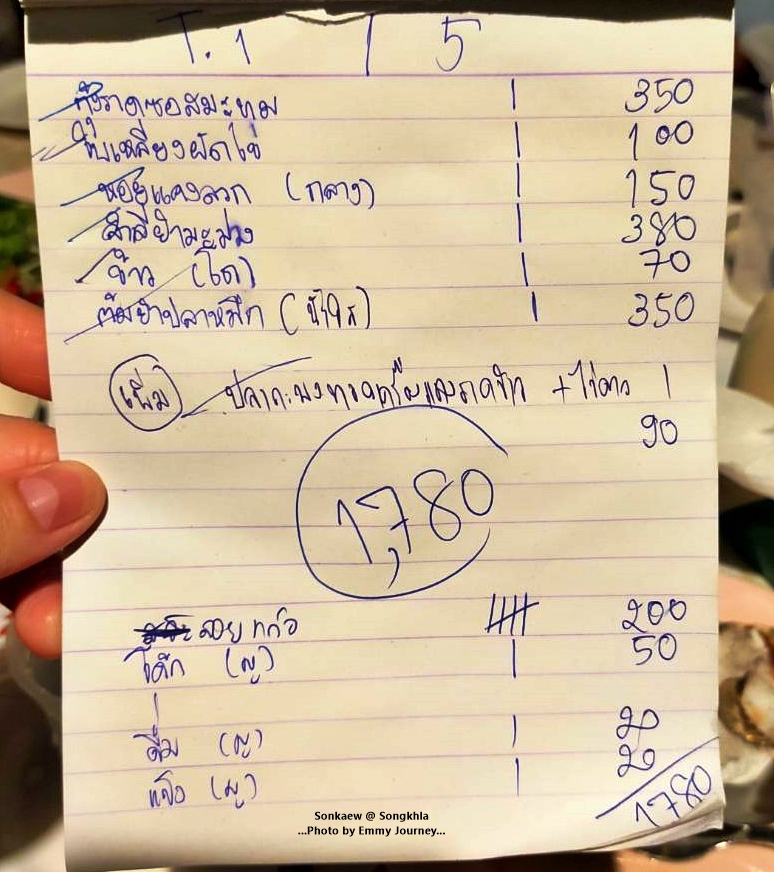 T. 1 | 5
กุ้งราดซอสมะขาม 1 350
ใบเหลียงผัดไข่ 1 100
หอยแครงลวก (กลาง) 1 150
สำลียำมะม่วง 1 380
ข้าว (โถ) 1 70
ต้มยำปลาหมึก (น้ำใส) 1 350
เพิ่ม ปลากะพงทอด + ไข่ดาว 1
90
1,780
ลอยแก้ว 200
โค้ก (ญ) 1 50
ดื่ม (ญ) 1 20
แข็ง (ญ) 1 20
1780
Sonkaew @ Songkhla
...Photo by Emmy Journey...